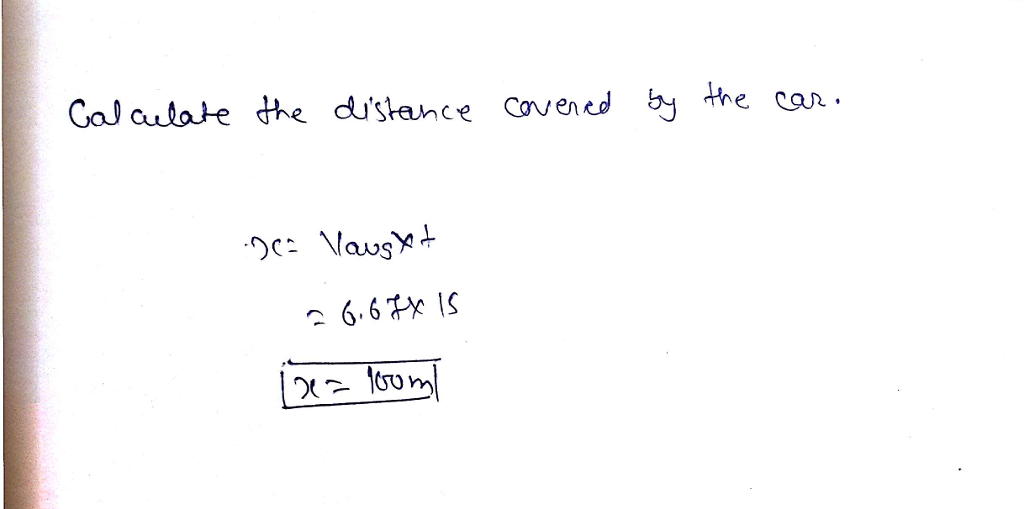 Calculate the distance covered by the car.
x = Vavg x t
= 6.67 x 15
x = 100m